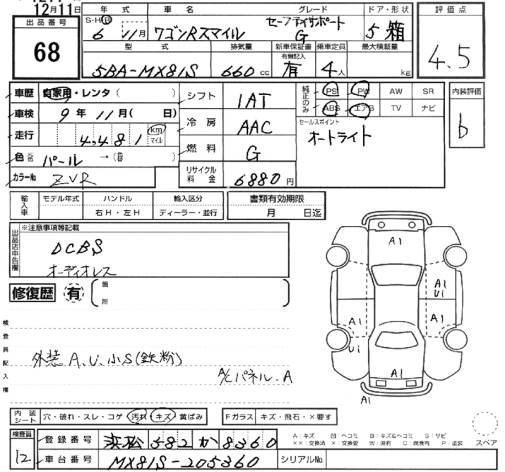 12月11日
出品番号 68
年式 S・H・R 6年11月
車名 ワゴンRスマイル
グレード セーフティサポート G
ドア・形状 5 箱
評価点 4.5
型式 5BA-MX81S
排気量 660cc
新車保証書 有機記入 有
乗車定員 4人
最大積載量 kg
車歴 自家用・レンタ( )
シフト 1AT
純正のみ PS PW AW SR
ABS エアB TV ナビ
内装評価 b
車検 9年11月( 日)
冷房 AAC
セールスポイント
オートライト
走行 4,481 km マイル
燃料 G
色 パール →( )
リサイクル料金 6880円
カラーNo ZVR
輸入車 モデル年式 ハンドル 右H・左H 輸入区分 ディーラー・並行
書類有効期限 月 日迄
出品店申告欄 ※注意事項等記載
DCBS
オーディオレス
修復歴 有 箇所
検査員記入欄
外装 A.U.小S(鉄粉)
A/Cパネル.A
A1
A1
U1
A1
A1
A1
U1
A1
内装シート 穴・破れ・スレ・コゲ 汚れ キズ 黄ばみ
Fガラス キズ・飛石・×要す
検査員 12
登録番号 浜松 582 か 8360
車台番号 MX81S-205360
シリアルNo
A:キズ U:ヘコミ B:キズ&ヘコミ S:サビ
××:交換済 ×:要交換 W:波有 C:腐食有 P:塗装
スペア